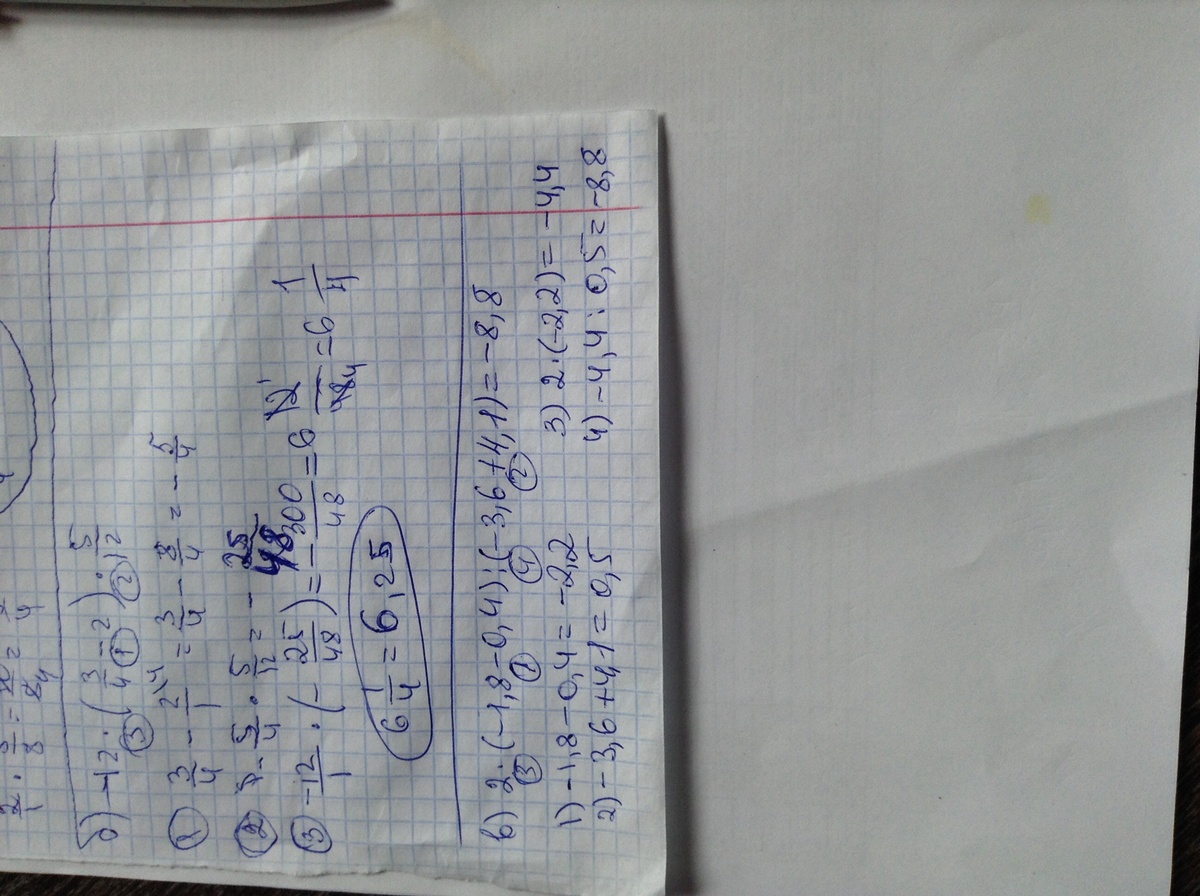 2/1 · 5/8 =
б) -12 · (3/4 - 2) · 5/12
③ ① ②
① 3/4 - 2\4/1 = 3/4 - 8/4 = - 5/4
② - 5/4 · 5/12 = - 25/48
③ -12/1 · (- 25/48) = 300/48 = 6 12 1/48 4 = 6 1/4
6 1/4 = 6,25
в) 2 · (-1,8 - 0,4) : (-3,6 + 4,1) = -8,8
③ ① ④ ②
1) -1,8 - 0,4 = -2,2
2) -3,6 + 4,1 = 0,5
3) 2 · (-2,2) = -4,4
4) -4,4 : 0,5 = -8,8